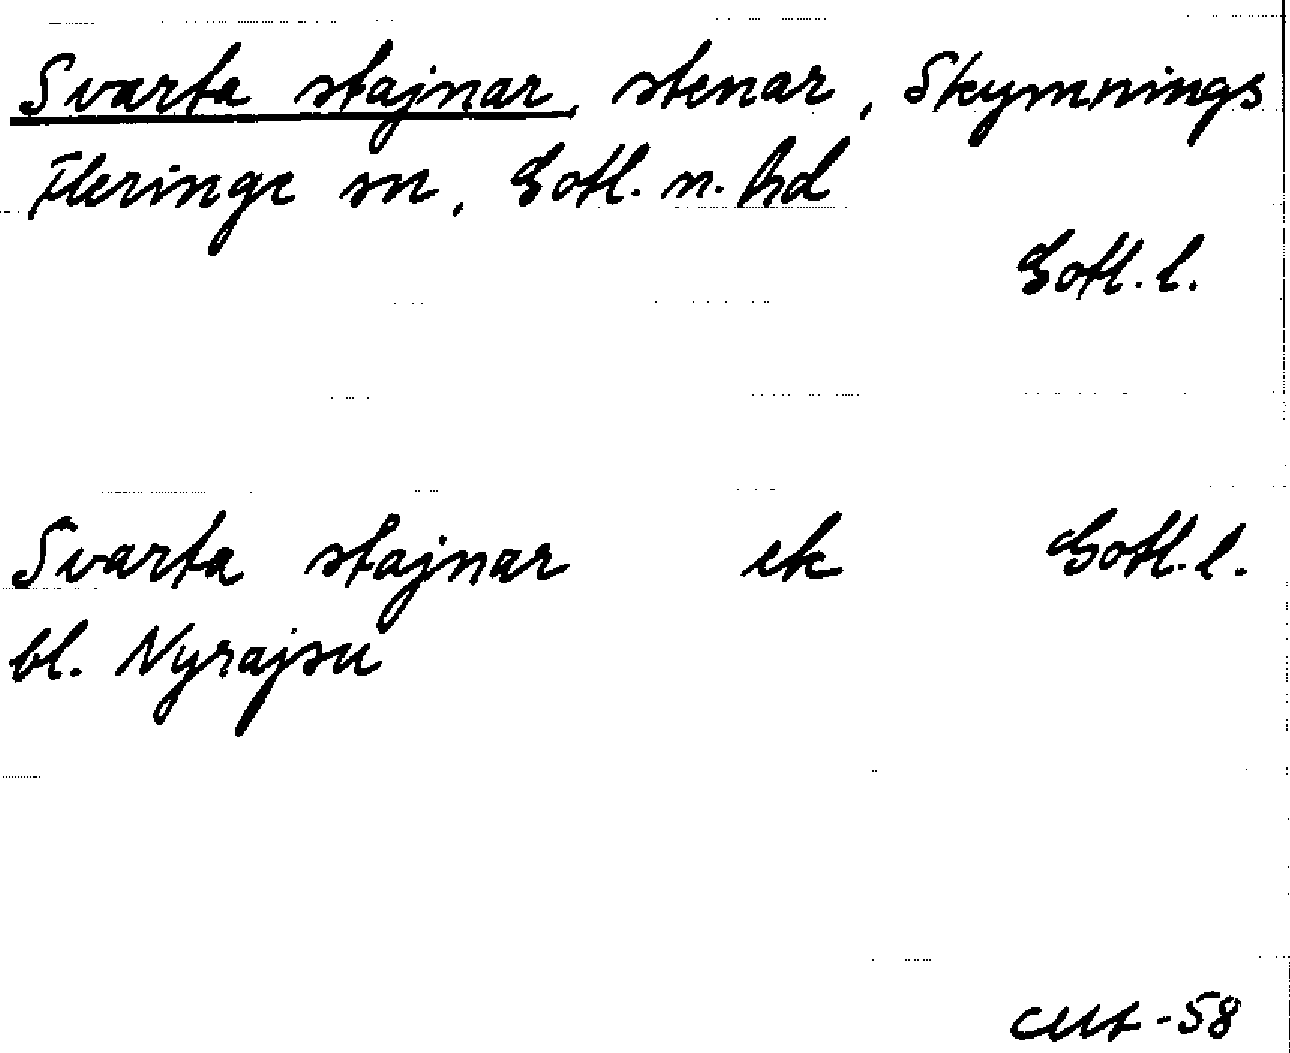 Svarta stajnar, stenar, Skymnings
Fleringe sn, Gotl. n. hd
Gotl. l.
Svarta stajnar ek Gotl. l.
bl. Nyrajsu
-58